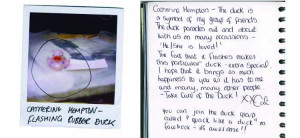 CATHERINE HAMPTON-
FLASHING RUBBER DUCK
Catherine Hampton - The duck is
a symbol of my group of friends
The duck parades out and about
with us on many occasions -
He/She is loved!
The fact that it flashes makes
this particular duck extra special.
I hope that it brings as much
happiness to you as it has to me
and many, many other people.
- Take care of the Duck!
you can join the duck group
called "quack like a duck" on
facebook - it's awesome!!